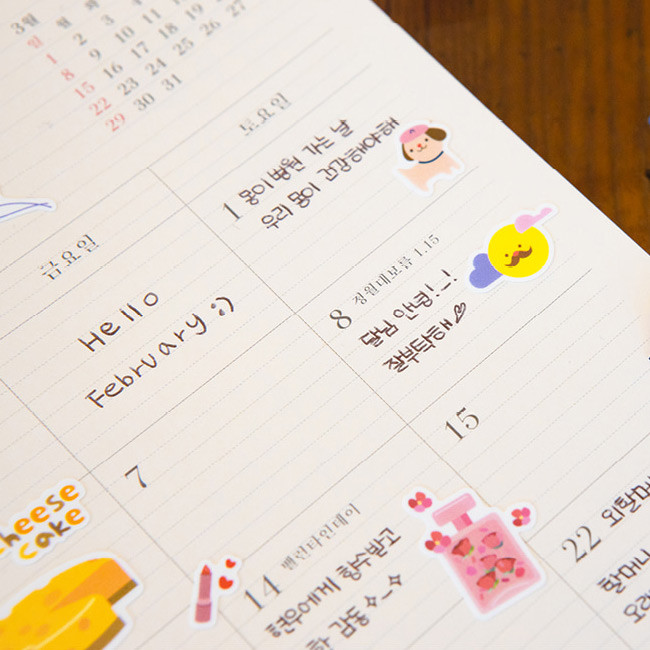 3월
일 월 화
1 2 3 4
8 9 10 11 12
15 16 17 18 19 20
22 23 24 25 26 27
29 30 31
토요일
1 몽이 병원 가는 날
우리 몽이 건강해야해
금요일
Hello
February :)
8 정월대보름 1.15
달님 안녕!_!
잘부탁해♡
7
15
cheese
cake
14 밸런타인데이
현우에게 향수받고
감동
22 외할머
할머니